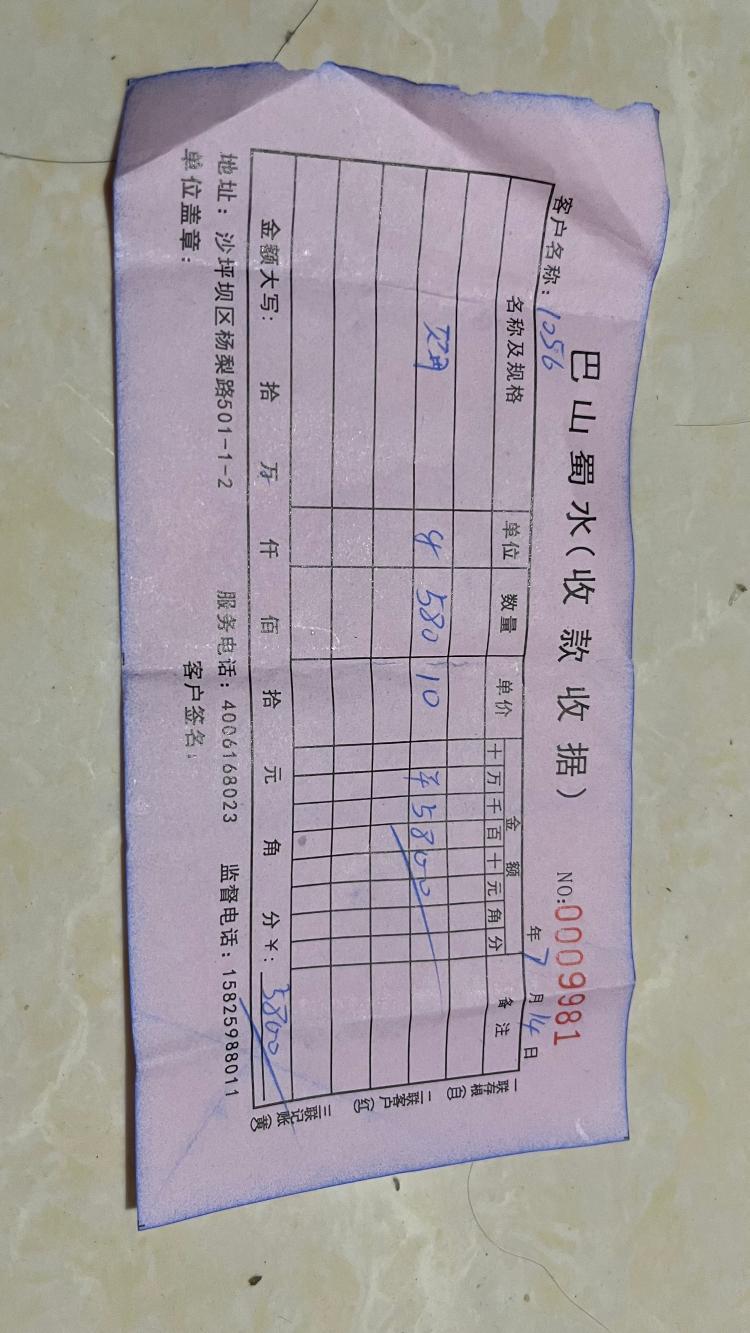 巴山蜀水(收款收据)
NO:0009981
客户名称:1056
年7月14日
名称及规格 单位 数量 单价 金额 备注
十 万 千 百 十 元 角 分
580 10 ¥5800
金额大写: 拾 万 仟 佰 拾 元 角 分 ¥:5800
地址:沙坪坝区杨梨路501-1-2 服务电话:4006168023 监督电话:15825988011
单位盖章: 客户签名:
一联存根(白)
二联客户(红)
三联记账(黄)